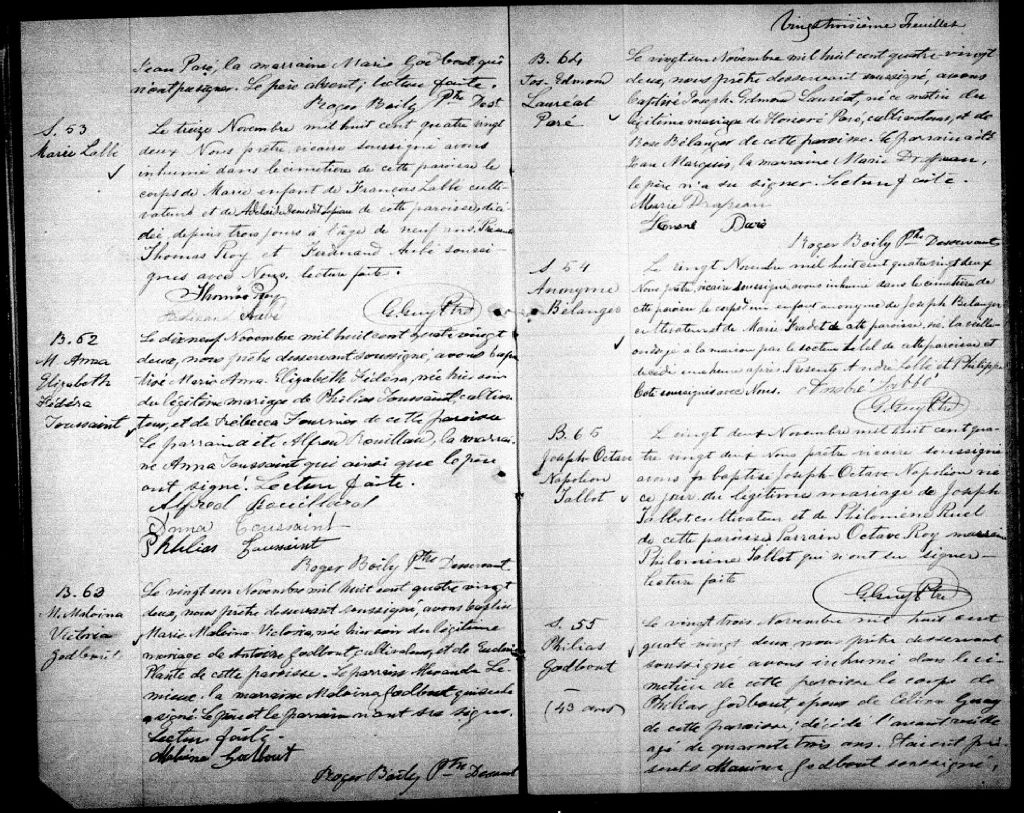 Jean Paré, la marraine Marie Godbout, qui
n'ont pas signé. Le père absent; lecture faite.
Roger Boily Ptre Dest
S. 53
Marie Labbé
Le treize Novembre mil huit cent quatre vingt
deux Nous prêtre vicaire soussigné avons
inhumé dans le cimetière de cette paroisse le
corps de Marie enfant de François Labbé culti-
vateur et de Adelaïde de cette paroisse, décé-
dée, depuis trois jours à l'âge de neuf ans. Présents
Thomas Roy et Ferdinand Aubé soussi-
gnés avec Nous, lecture faite.
Thomas Roy
Ferdinand Aubé
G. Guy Ptre
B. 62
M. Anna
Elizabeth
Fédéra
Toussaint
Le dix neuf Novembre mil huit cent quatre vingt
deux, nous prêtre desservant soussigné, avons bap-
tisé Marie Anna Elizabeth Fédéra, née hier soir
du légitime mariage de Philias Toussaint, cultiva-
teur, et de Rébecca Fournier de cette paroisse
Le parrain a été Alfred Rouillard, la marrai-
ne Anna Toussaint qui ainsi que le père
ont signé. Lecture faite.
Alfred Rouillard
Anna Toussaint
Philias Toussaint
Roger Boily Ptre Desservant
B. 63
M. Malvina
Victoria
Godbout
Le vingt un Novembre mil huit cent quatre vingt
deux, nous prêtre desservant soussigné, avons baptisé
Marie Malvina Victoria, née hier soir du légitime
mariage de Antoine Godbout, cultivateur, et de
Plante de cette paroisse. Le parrain Le-
mieux, la marraine Malvina Godbout qui seule
a signé. Le père et le parrain n'ont su signer.
Lecture faite.
Malvina Godbout
Roger Boily Ptre Desservant
Vingt troisième Feuillet
B. 64
Jos. Edmond
Lauréat
Paré
Le vingt un Novembre mil huit cent quatre-vingt
deux, nous prêtre desservant soussigné, avons
baptisé Joseph Edmond Lauréat, né ce matin du
légitime mariage de Honoré Paré, cultivateur, et de
Rose Bélanger de cette paroisse. Le parrain a été
Jean Marquis, la marraine Marie Drapeau,
le père n'a su signer. Lecture faite.
Marie Drapeau
Honoré Paré
Roger Boily Ptre Desservant
S. 54
Anonyme
Bélanger
Le vingt Novembre mil huit cent quatre vingt deux
Nous prêtre, vicaire soussigné, avons inhumé dans le cimetière de
cette paroisse le corps d'un enfant anonyme de Joseph Bélanger
cultivateur et de Marie de cette paroisse, né la veille
ondoyé à la maison par le docteur de cette paroisse et
décédé une heure après. Présents André Labbé et Philippe
Coté soussignés avec Nous.
André Labbé
G. Guy Ptre
B. 65
Joseph-Octave
Napoléon
Talbot
Le vingt deux Novembre mil huit cent qua-
tre vingt deux Nous prêtre vicaire soussigné
avons baptisé Joseph-Octave Napoléon né
ce jour du légitime mariage de Joseph
Talbot, cultivateur et de Philomène Ruel
de cette paroisse Parrain Octave Roy marraine
Philomène Talbot qui n'ont su signer
lecture faite
G. Guy Ptre
S. 55
Philias
Godbout
(43 ans)
Le vingt trois Novembre mil huit cent
quatre vingt deux, nous prêtre desservant
soussigné avons inhumé dans le ci-
metière de cette paroisse le corps de
Philias Godbout, époux de Célina Guay
de cette paroisse, décédé l'avant veille
âgé de quarante trois ans. Etaient pré-
sents Godbout soussigné,